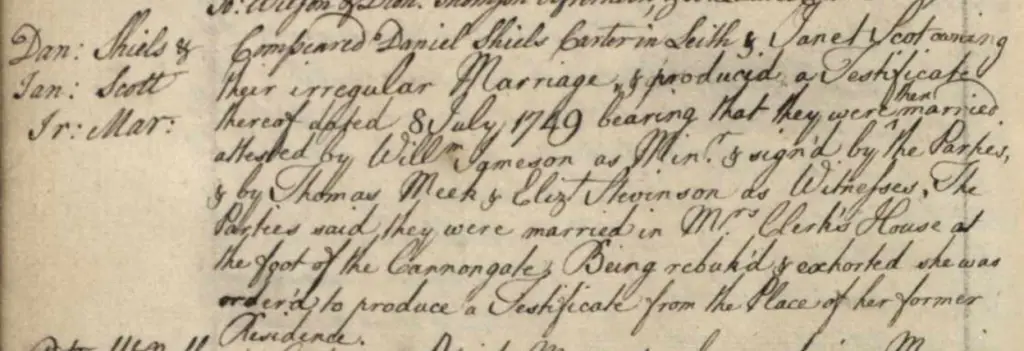 Dan: Shiels &
Jan: Scott
Ir: Mar:
Compeared Daniel Shiels Carter in Leith & Janet Scot owning
their irregular Marriage, & produc'd a Testificate
thereof dated 8 July 1749 bearing that they were then married
attested by Will^m Jameson as Min^r. & sign'd by the Parties,
& by Thomas Meek & Eliz^t Stevinson as Witnesses. The
Parties said they were married in M^rs Clerk's House at
the foot of the Cannongate. Being rebuk'd & exhorted she was
order'd to produce a Testificate from the Place of her former
Residence.